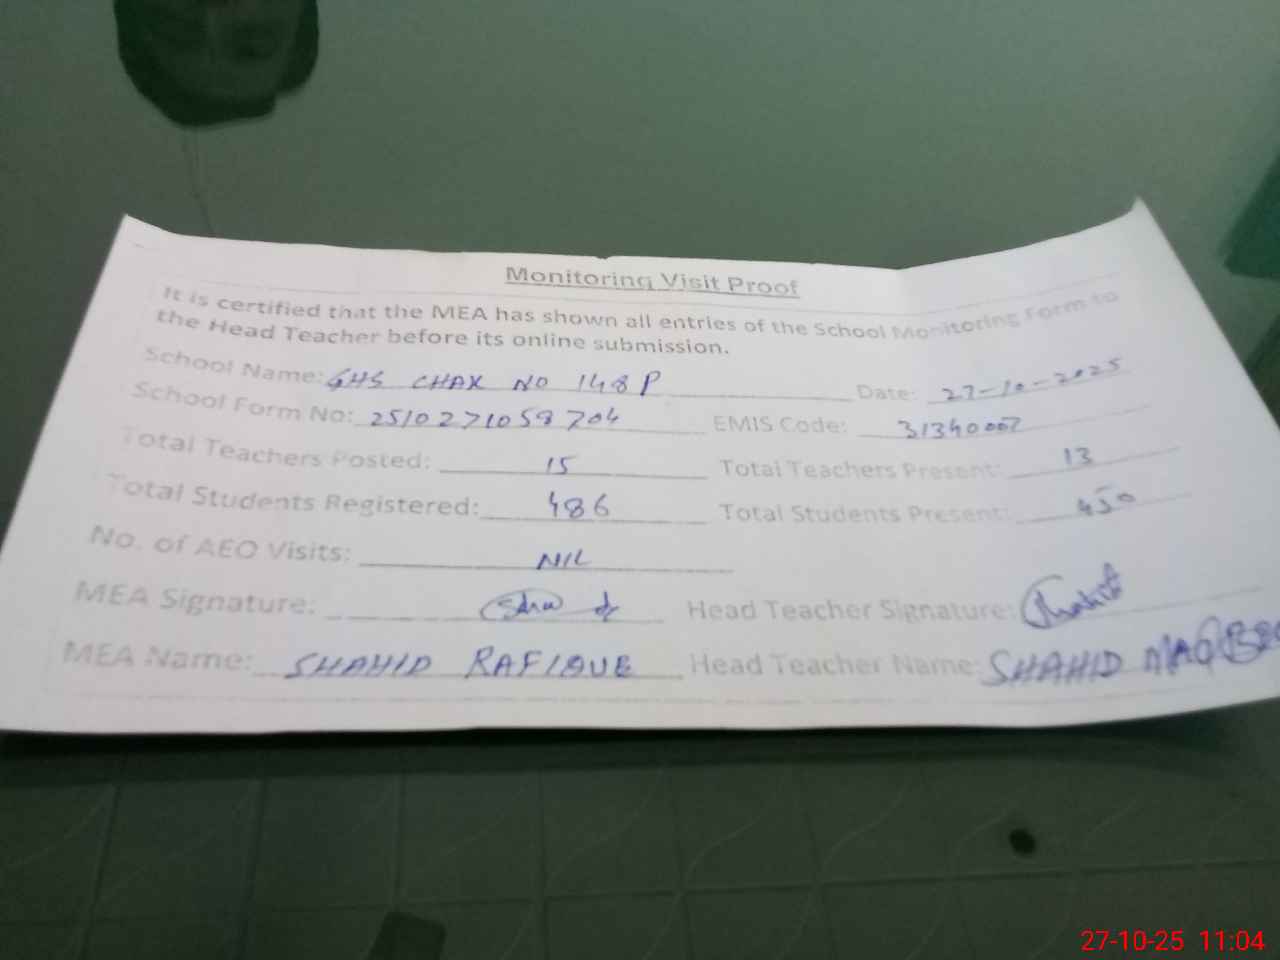 Monitoring Visit Proof
It is certified that the MEA has shown all entries of the School Monitoring Form to
the Head Teacher before its online submission.
School Name: GHS CHAK NO 148 P Date: 27-10-2025
School Form No: 2510271058704 EMIS Code: 31340007
Total Teachers Posted: 15 Total Teachers Present: 13
Total Students Registered: 486 Total Students Present: 450
No. of AEO Visits: NIL
MEA Signature: Head Teacher Signature:
MEA Name: SHAHID RAFIQUE Head Teacher Name: SHAHID
27-10-25 11:04